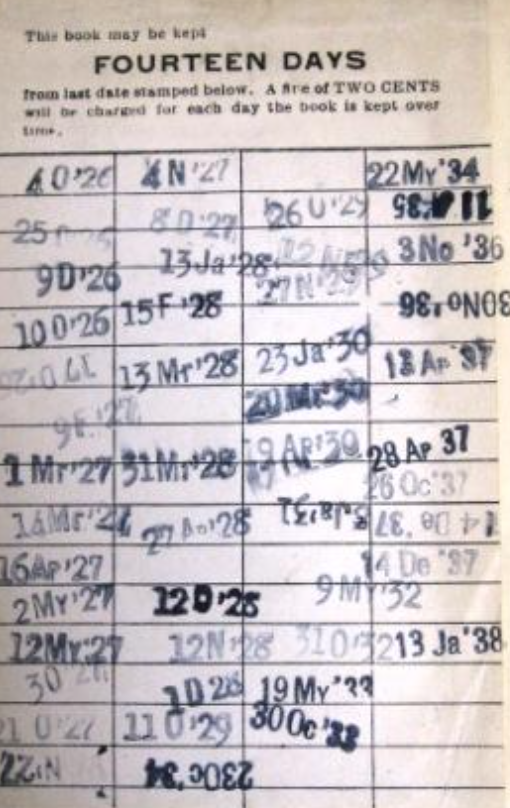 This book may be kept
FOURTEEN DAYS
from last date stamped below. A fine of TWO CENTS
will be charged for each day the book is kept over
time.
4 O'26 4 N '27 22 My '34
25 8 D '27 26 O '29
9 D '26 13 Ja '28 27 N '29 3 No '36
10 O '26 15 F '28 30 No '36
13 Mr '28 23 Ja '30 13 Ap '37
20 Mr 30
1 Mr '27 31 Mr '28 9 Ap '30 28 Ap 37
26 Oc '37
27 Ap '28 14 De '37
16 Ap '27 14 De '37
2 My '27 12 D '28 9 My '32
12 My '27 12 N '28 31 O '32 13 Ja '38
1 D 28 19 My '33
11 O '29 30 Oc '33
23 Oc '34